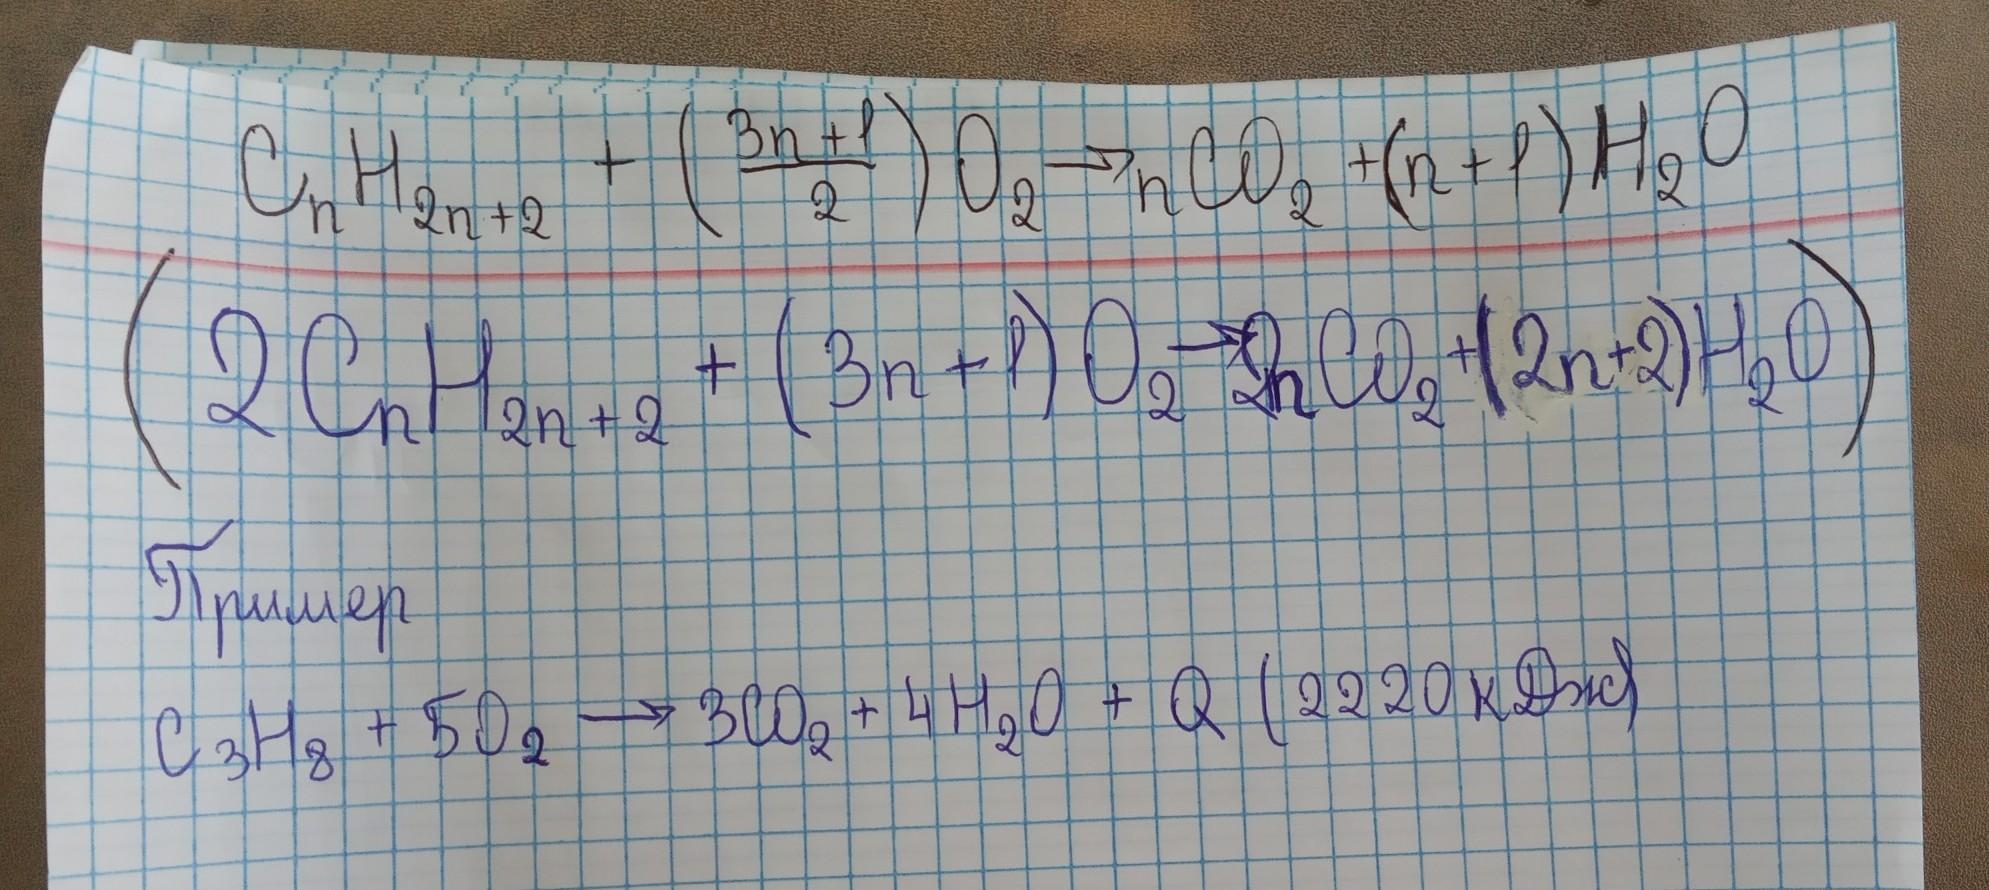 CₙH₂ₙ₊₂ + ((3n+1)/2) O₂ → nCO₂ + (n+1) H₂O
(2CₙH₂ₙ₊₂ + (3n+1) O₂ → 2nCO₂ + (2n+2) H₂O)
Пример
C₃H₈ + 5O₂ → 3CO₂ + 4H₂O + Q (2220 кДж)